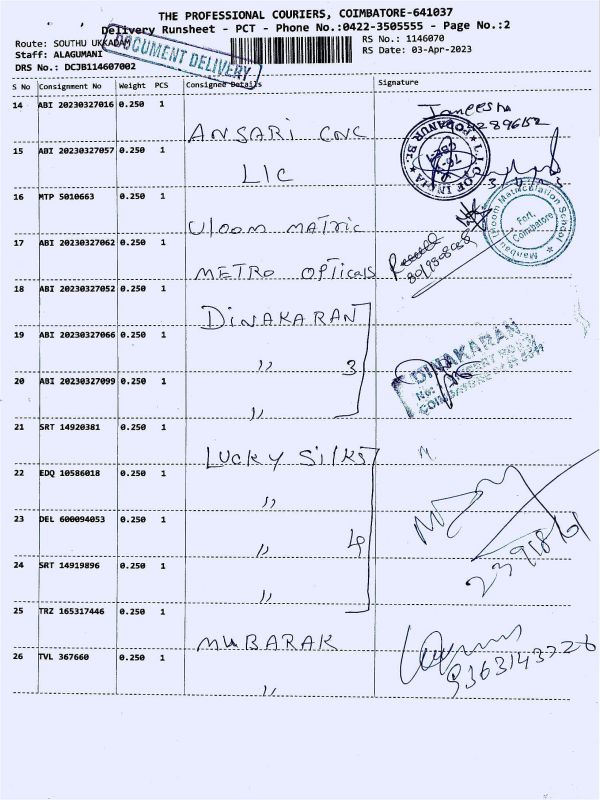 THE PROFESSIONAL COURIERS, COIMBATORE-641037
Delivery Runsheet - PCT - Phone No.:0422-3505555 - Page No.:2
Route: SOUTHU UKKADAM
DOCUMENT DELIVERY
RS No.: 1146070
Staff: ALAGUMANI
RS Date: 03-Apr-2023
DRS No.: DCJB114607002
S No Consignment No Weight PCS Consignee Details Signature
14 ABI 20230327016 0.250 1
ANSARI CNC
15 ABI 20230327057 0.250 1
LIC
L.I.C OF INDIA
16 MTP 5010663 0.250 1
Uloom MATRIC
Manbaul Uloom Matriculation School
Fort, Coimbatore
17 ABI 20230327062 0.250 1
METRO OPTICALS
18 ABI 20230327052 0.250 1
DINAKARAN
19 ABI 20230327066 0.250 1
,, 3
DINAKARAN
20 ABI 20230327099 0.250 1
,,
21 SRT 14920381 0.250 1
LUCKY SILKS
22 EDQ 10586018 0.250 1
,,
23 DEL 600094053 0.250 1
,, 4
24 SRT 14919896 0.250 1
,,
25 TRZ 165317446 0.250 1
MUBARAK
9363143226
26 TVL 367660 0.250 1
,,